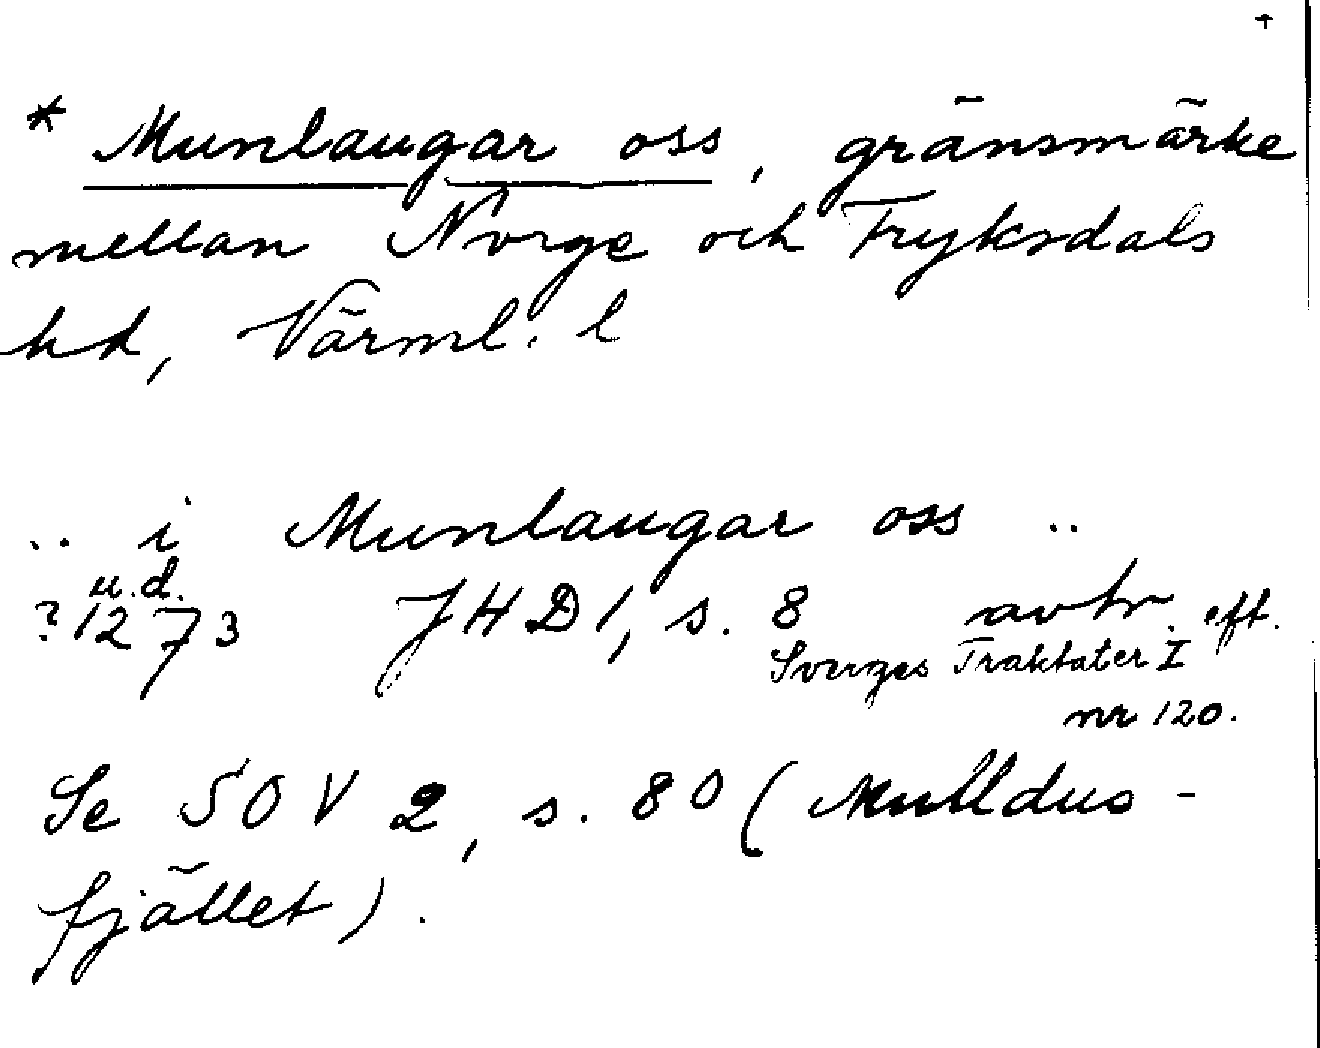 †
* Munlaugar oss, gränsmärke
mellan Norge och Fryksdals
hd, Värml. l
.. i Munlaugar oss ..
u.d.
? 1273 JHD 1, s. 8 avtr. eft.
Sverges Traktater I
nr 120.
Se SOV 2, s. 80 (Mulldus-
fjället).